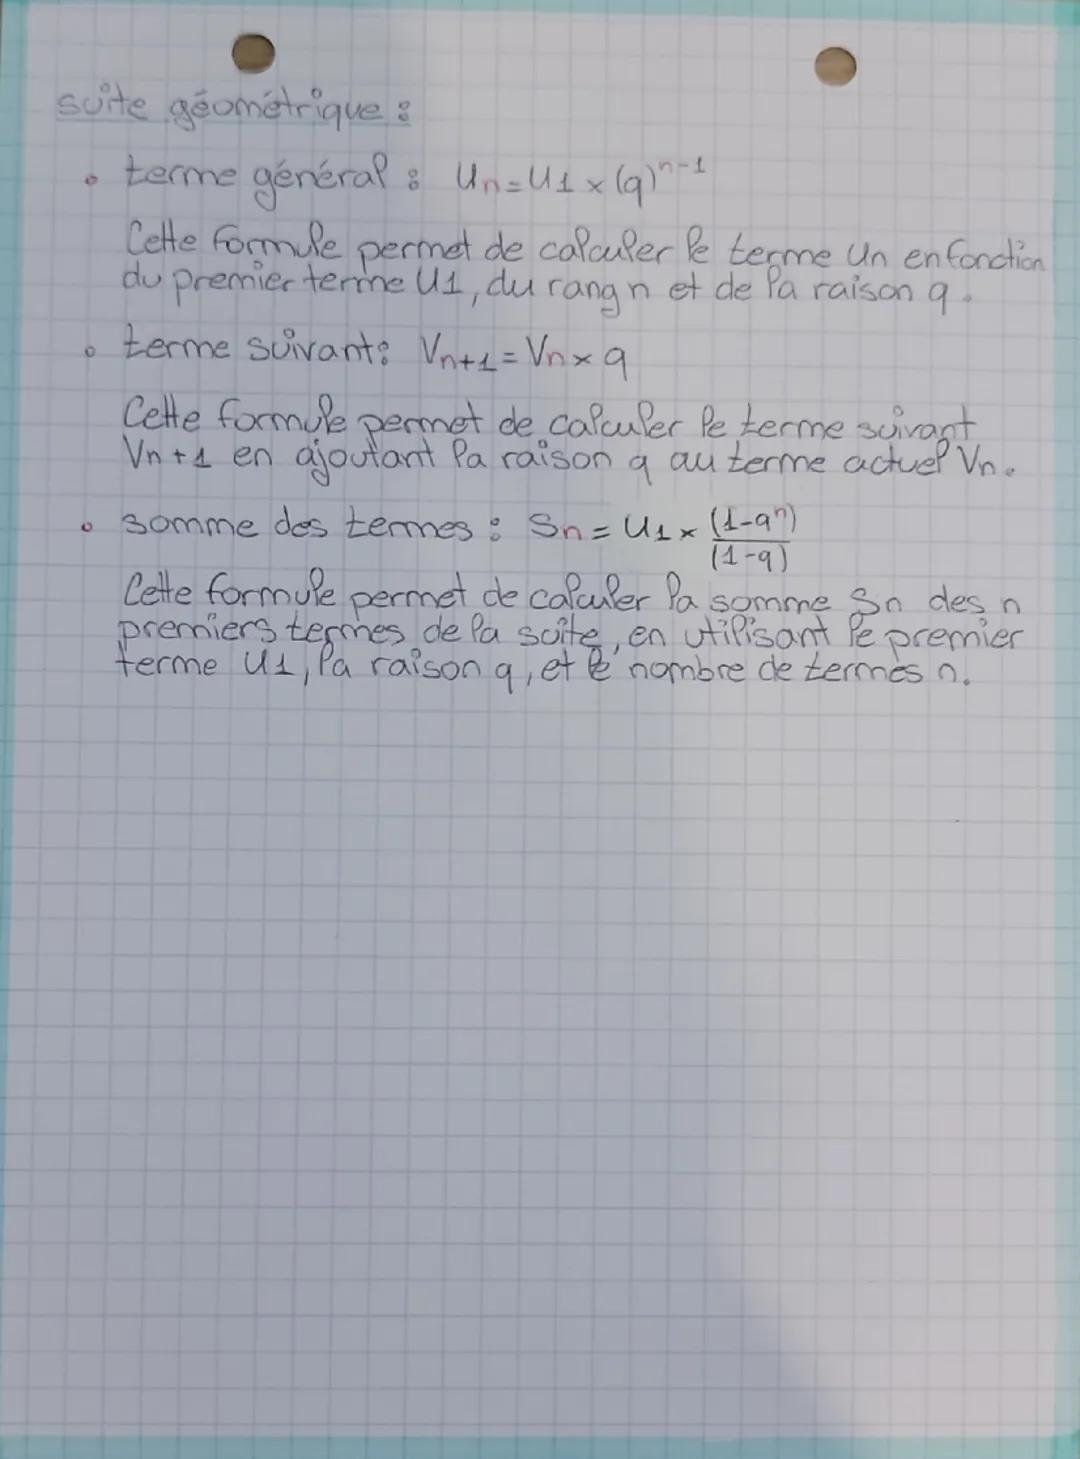 suite géométrique :
• terme général : Un = U1 × (q)^n-1
Cette formule permet de calculer le terme Un en fonction
du premier terme U1, du rang n et de la raison q.
• terme suivant : Vn+1 = Vn × q
Cette formule permet de calculer le terme suivant
Vn+1 en ajoutant la raison q au terme actuel Vn.
• somme des termes : Sn = U1 × (1-q^n)/(1-q)
Cette formule permet de calculer la somme Sn des n
premiers termes de la suite, en utilisant le premier
terme U1, la raison q, et le nombre de termes n.